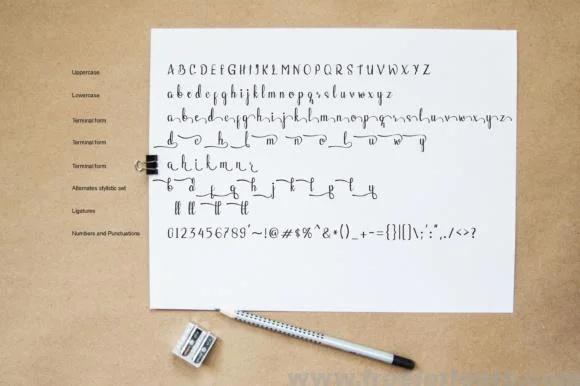 Uppercase A B C D E F G H I J K L M N O P Q R S T U V W X Y Z
Lowercase a b c d e f g h i j k l m n o p q r s t u v w x y z
Terminal form a b c d e f g h i j k l m n o p q r s t u v w x y z
Terminal form d h l m n o u w y
Terminal form a h i k m n r
Alternates stylistic set b d f g h j k l p t y
Ligatures
Numbers and Punctuations 0123456789'~!@#$%^&*()_+-={}|[]\;':",./<>?